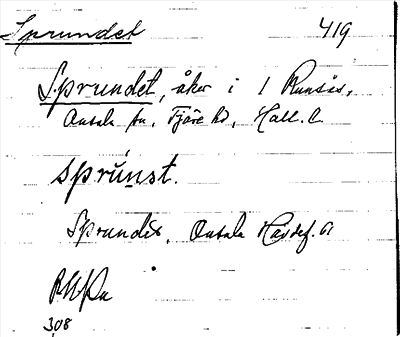 Sprundet 419
Sprundet, åker i 1 Runsås,
Onsala sn, Fjäre hd, Hall. l.
sprúnst.
Sprundet, Onsala Hävdef. 61
308